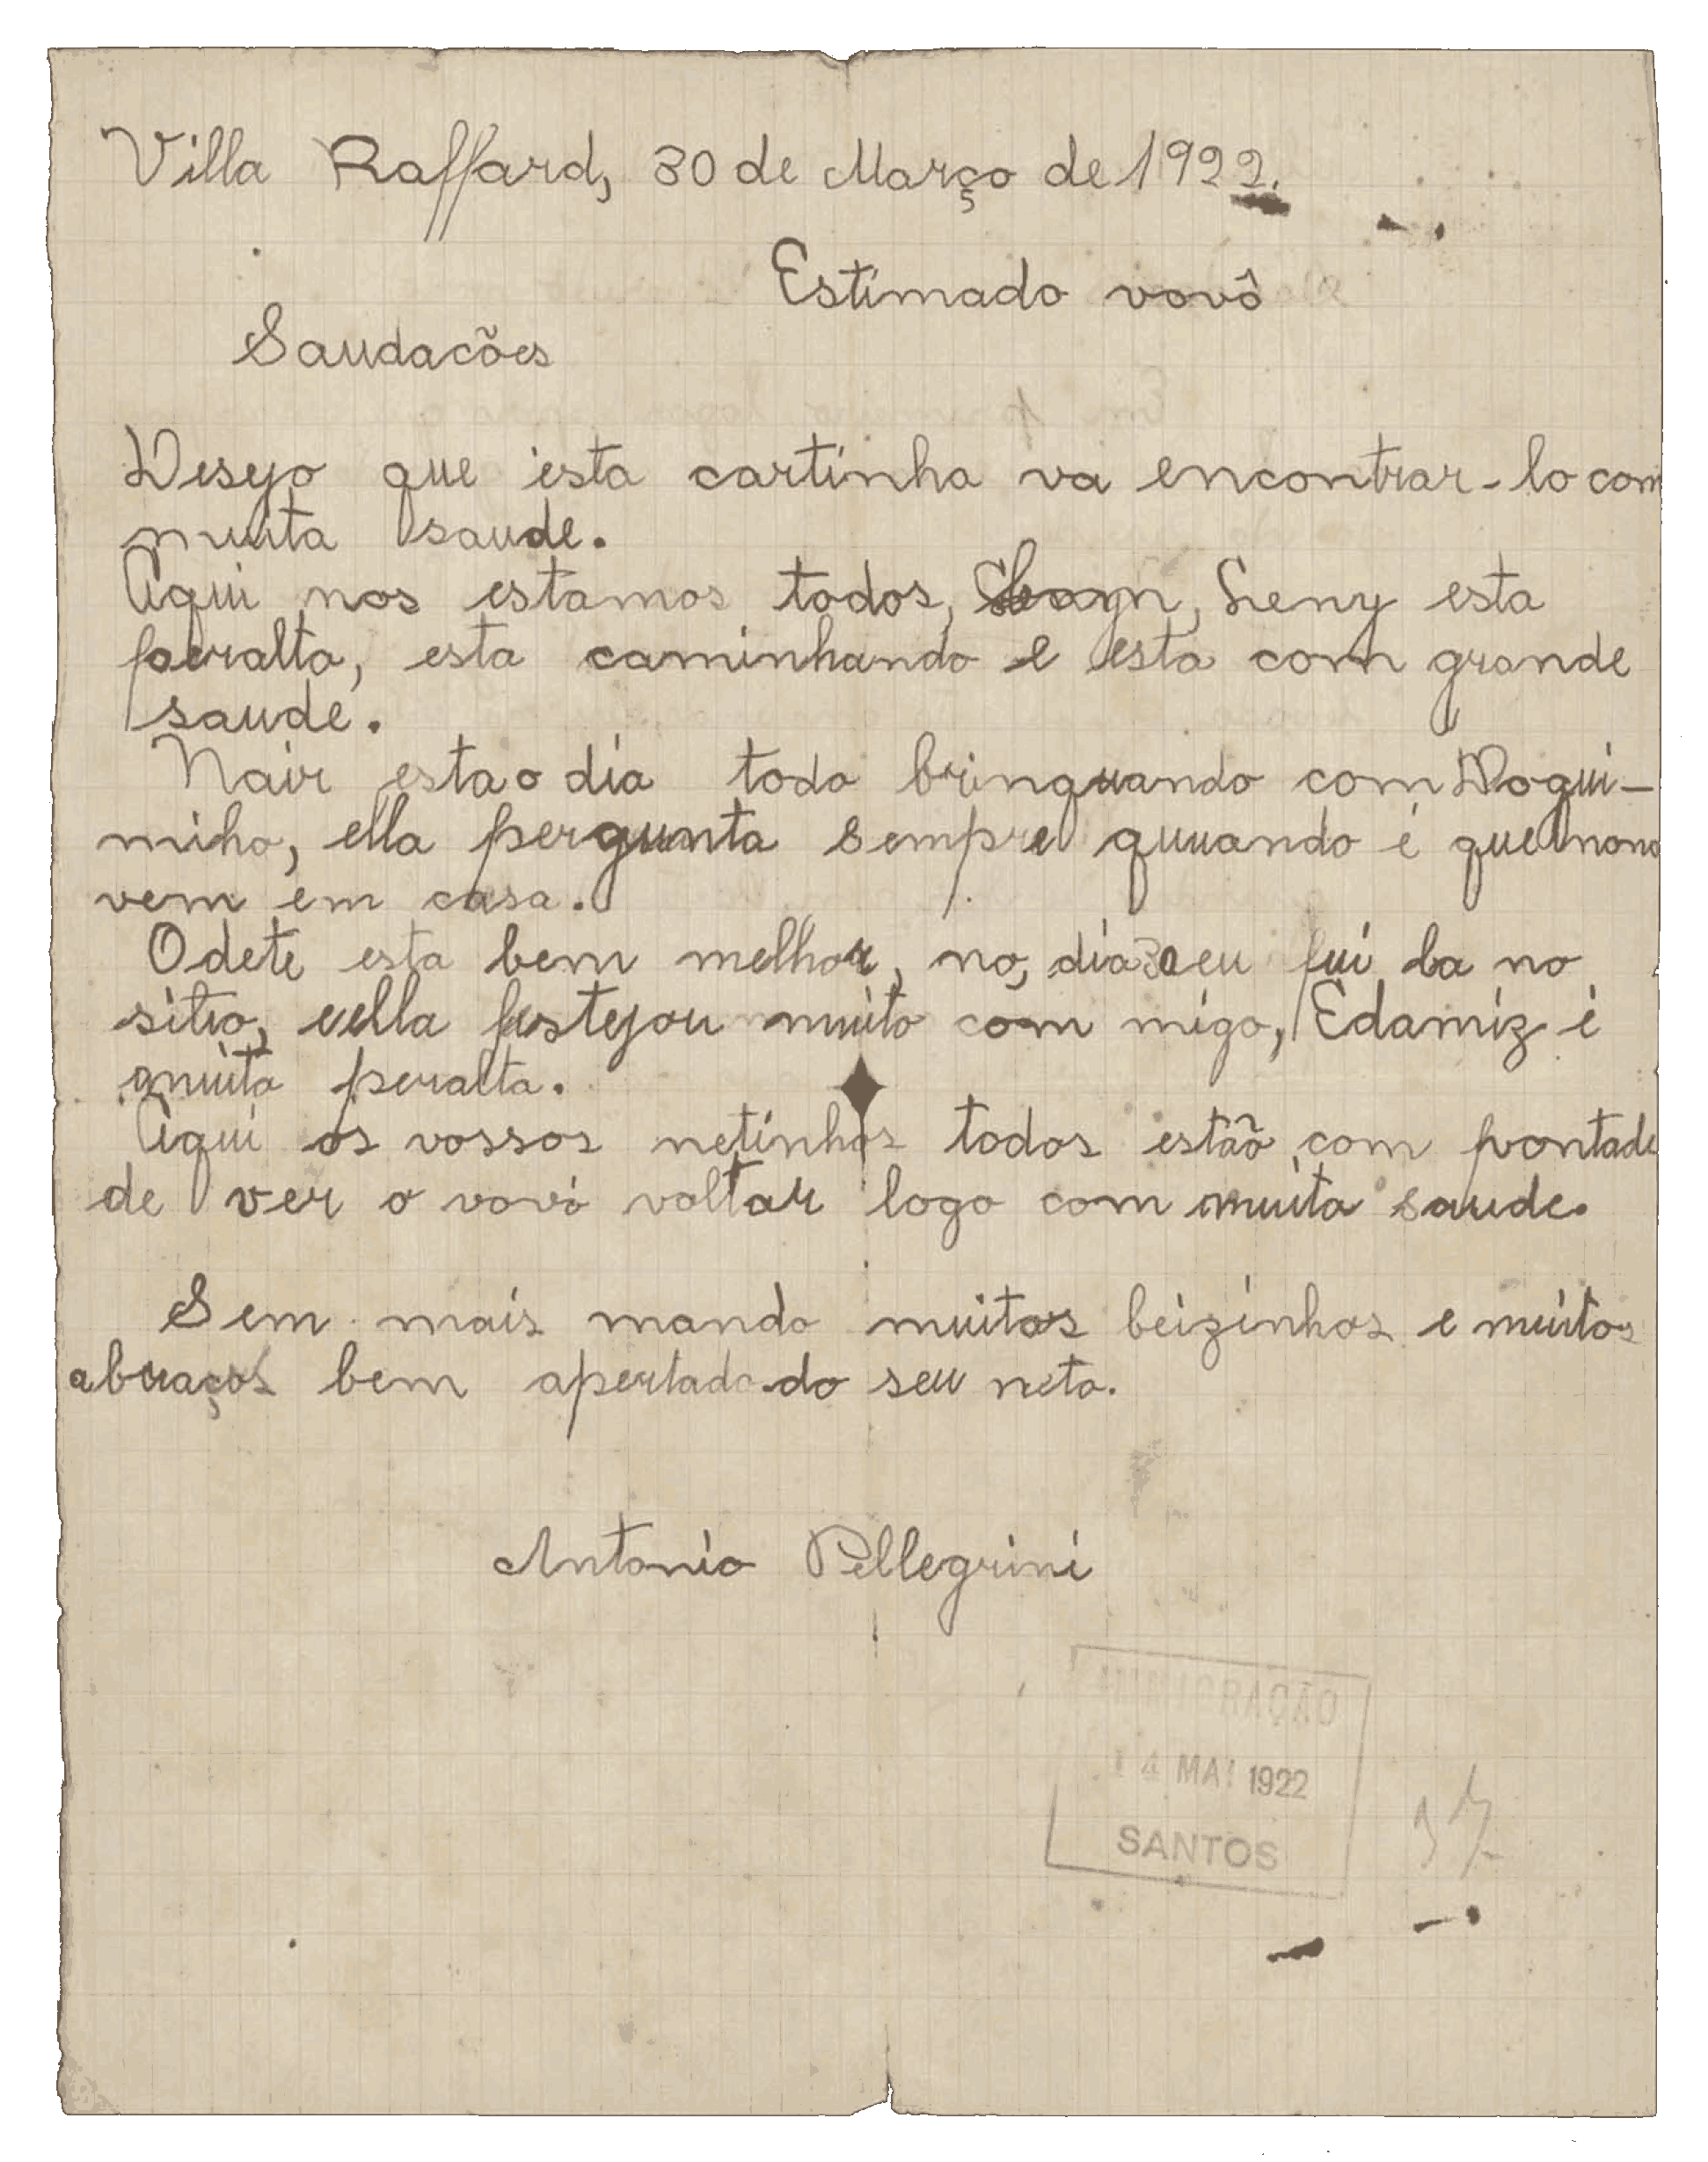 Villa Raffard, 30 de Março de 1922.
Estimado vovô
Saudacões
Desejo que esta cartinha va encontrar-lo com
muita saude.
Aqui nos estamos todos, Leny esta
peralta, esta caminhando e esta com grande
saude.
Nair esta o dia todo brinquando com Doqui-
minho, ella pergunta sempre quuando é que nono
vem em casa.
Odete esta bem melhor, no, dia 30 eu fui la no
sitio, eella festejou muito com migo, Edamiz é
muita peralta.
Aqui os vossos netinhos todos estão com vontade
de ver o vovô voltar logo com muita saude.
Sem mais mando muitos beizinhos e muitos
abraços bem apertado do seu neto.
Antonio Pellegrini
IMMIGRAÇÃO
14 MAI 1922
SANTOS